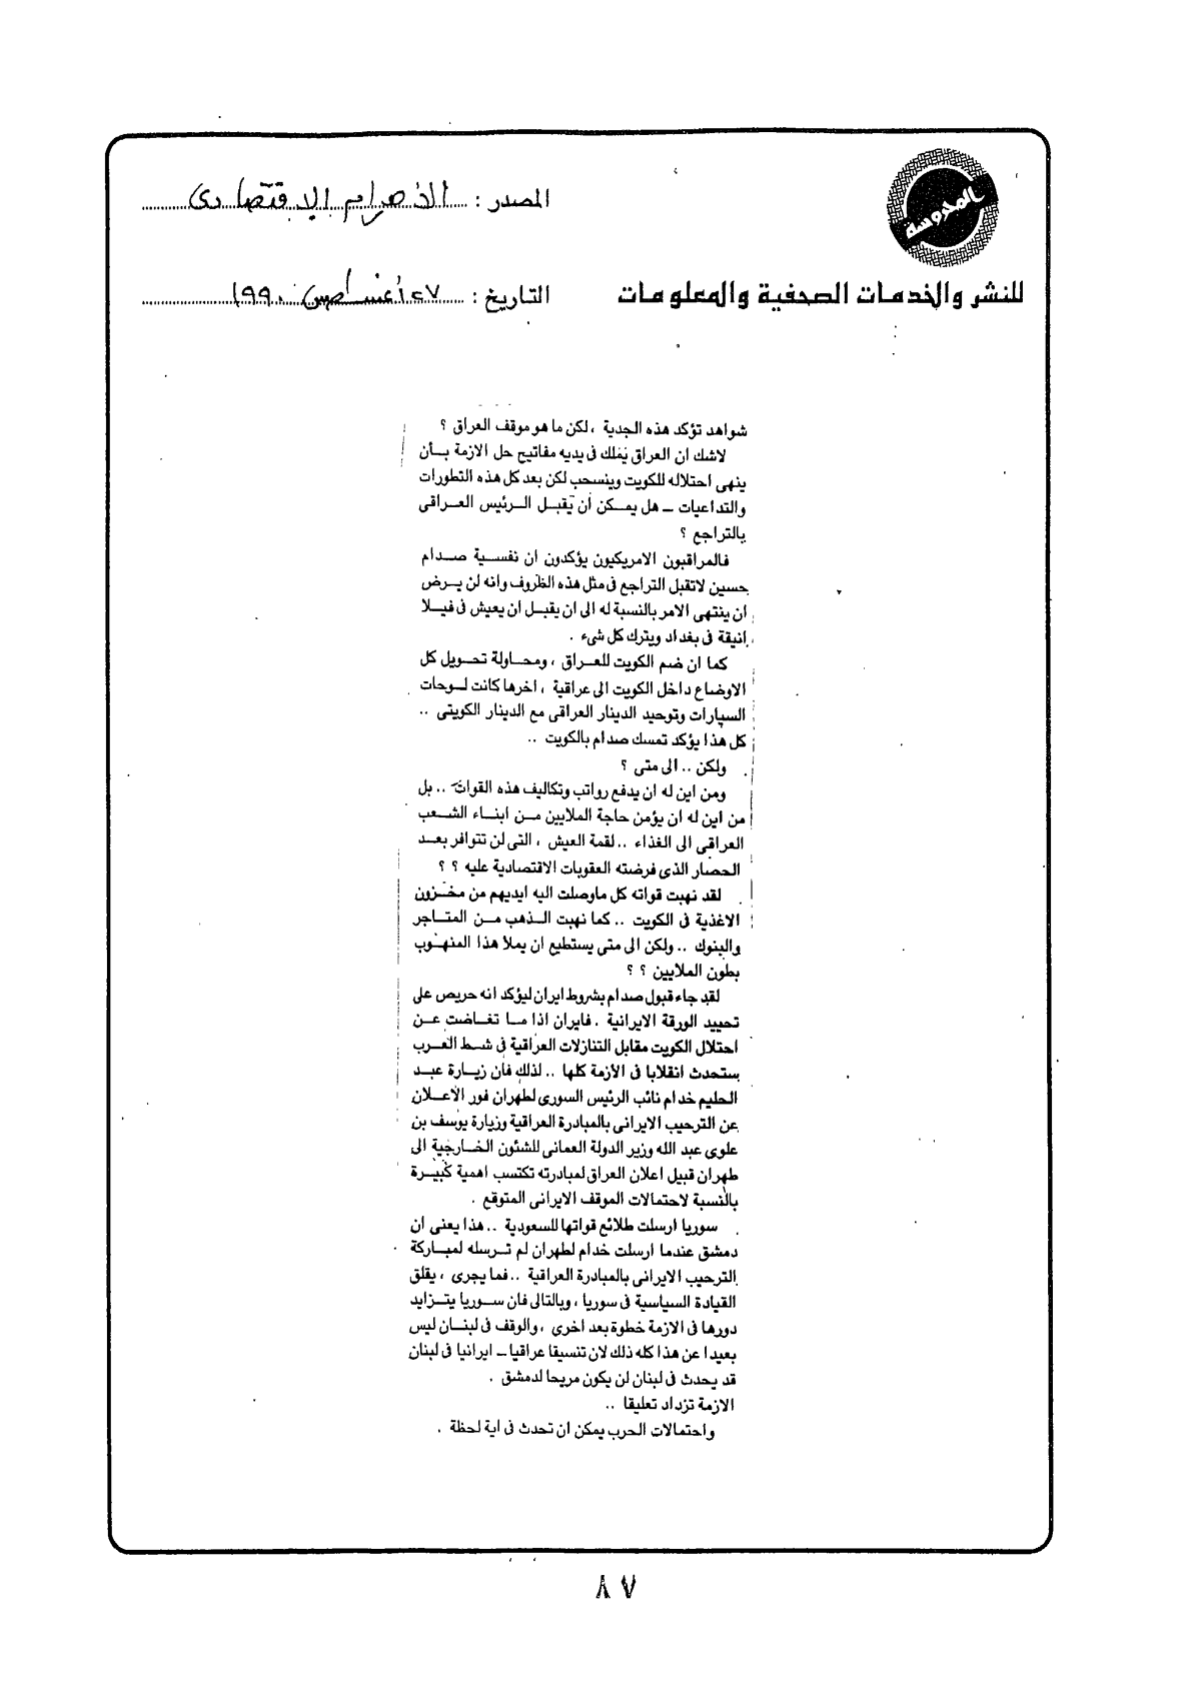 المحروسة
للنشر والخدمات الصحفية والمعلومات
المصدر : الأهرام الاقتصادى
التاريخ : ٢٧ أغسطس ١٩٩٠
شواهد تؤكد هذه الجدية ، لكن ما هو موقف العراق ؟
لاشك ان العراق يملك فى يديه مفاتيح حل الازمة بأن
ينهى احتلاله للكويت وينسحب لكن بعد كل هذه التطورات
والتداعيات ــ هل يمكن أن يقبل الرئيس العراقى
بالتراجع ؟
فالمراقبون الامريكيون يؤكدون ان نفسية صدام
حسين لاتقبل التراجع فى مثل هذه الظروف وانه لن يرض
ان ينتهى الامر بالنسبة له الى ان يقبل ان يعيش فى فيلا
انيقة فى بغداد ويترك كل شىء .
كما ان ضم الكويت للعراق ، ومحاولة تحويل كل
الاوضاع داخل الكويت الى عراقية ، اخرها كانت لوحات
السيارات وتوحيد الدينار العراقى مع الدينار الكويتى ..
كل هذا يؤكد تمسك صدام بالكويت ..
ولكن .. الى متى ؟
ومن اين له ان يدفع رواتب وتكاليف هذه القوات .. بل
من اين له ان يؤمن حاجة الملايين من ابناء الشعب
العراقى الى الغذاء .. لقمة العيش ، التى لن تتوافر بعد
الحصار الذى فرضته العقوبات الاقتصادية عليه ؟ ؟
لقد نهبت قواته كل ماوصلت اليه ايديهم من مخزون
الاغذية فى الكويت .. كما نهبت الذهب من المتاجر
والبنوك .. ولكن الى متى يستطيع ان يملأ هذا المنهوب
بطون الملايين ؟ ؟
لقد جاء قبول صدام بشروط ايران ليؤكد انه حريص على
تحييد الورقة الايرانية . فايران اذا ما تغاضت عن
احتلال الكويت مقابل التنازلات العراقية فى شط العرب
ستحدث انقلابا فى الأزمة كلها .. لذلك فأن زيارة عبد
الحليم خدام نائب الرئيس السورى لطهران فور الأعلان
عن الترحيب الايرانى بالمبادرة العراقية وزيارة يوسف بن
علوى عبد الله وزير الدولة العمانى للشئون الخارجية الى
طهران قبيل اعلان العراق لمبادرته تكتسب اهمية كبيرة
بالنسبة لاحتمالات الموقف الايرانى المتوقع .
سوريا ارسلت طلائع قواتها للسعودية .. هذا يعنى ان
دمشق عندما ارسلت خدام لطهران لم ترسله لمباركة
الترحيب الايرانى بالمبادرة العراقية .. فما يجرى ، يقلق
القيادة السياسية فى سوريا ، وبالتالى فان سوريا يتزايد
دورها فى الازمة خطوة بعد اخرى ، والوقف فى لبنان ليس
بعيدا عن هذا كله ذلك لان تنسيقا عراقيا ــ ايرانيا فى لبنان
قد يحدث فى لبنان لن يكون مريحا لدمشق .
الازمة تزداد تعليقا ..
واحتمالات الحرب يمكن ان تحدث فى اية لحظة .
٨٧